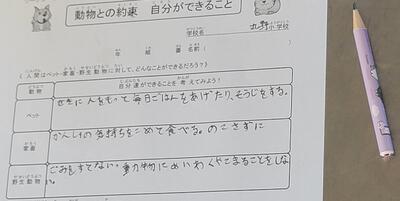 動物との約束 自分ができること
学校名 小学校
年 組 番 名前(
( 人間はペット・家畜・野生動物に対して、どんなことができるだろう? )
動物 自分達ができることを 考えてみよう!
ペット
せきにんをもって毎日ごはんをあげたり、そうじをする。
家畜
かんしゃの気持ちをこめて食べる。のこさずに
野生動物
ごみをすてない。動物にめいわくやこまることをしない。